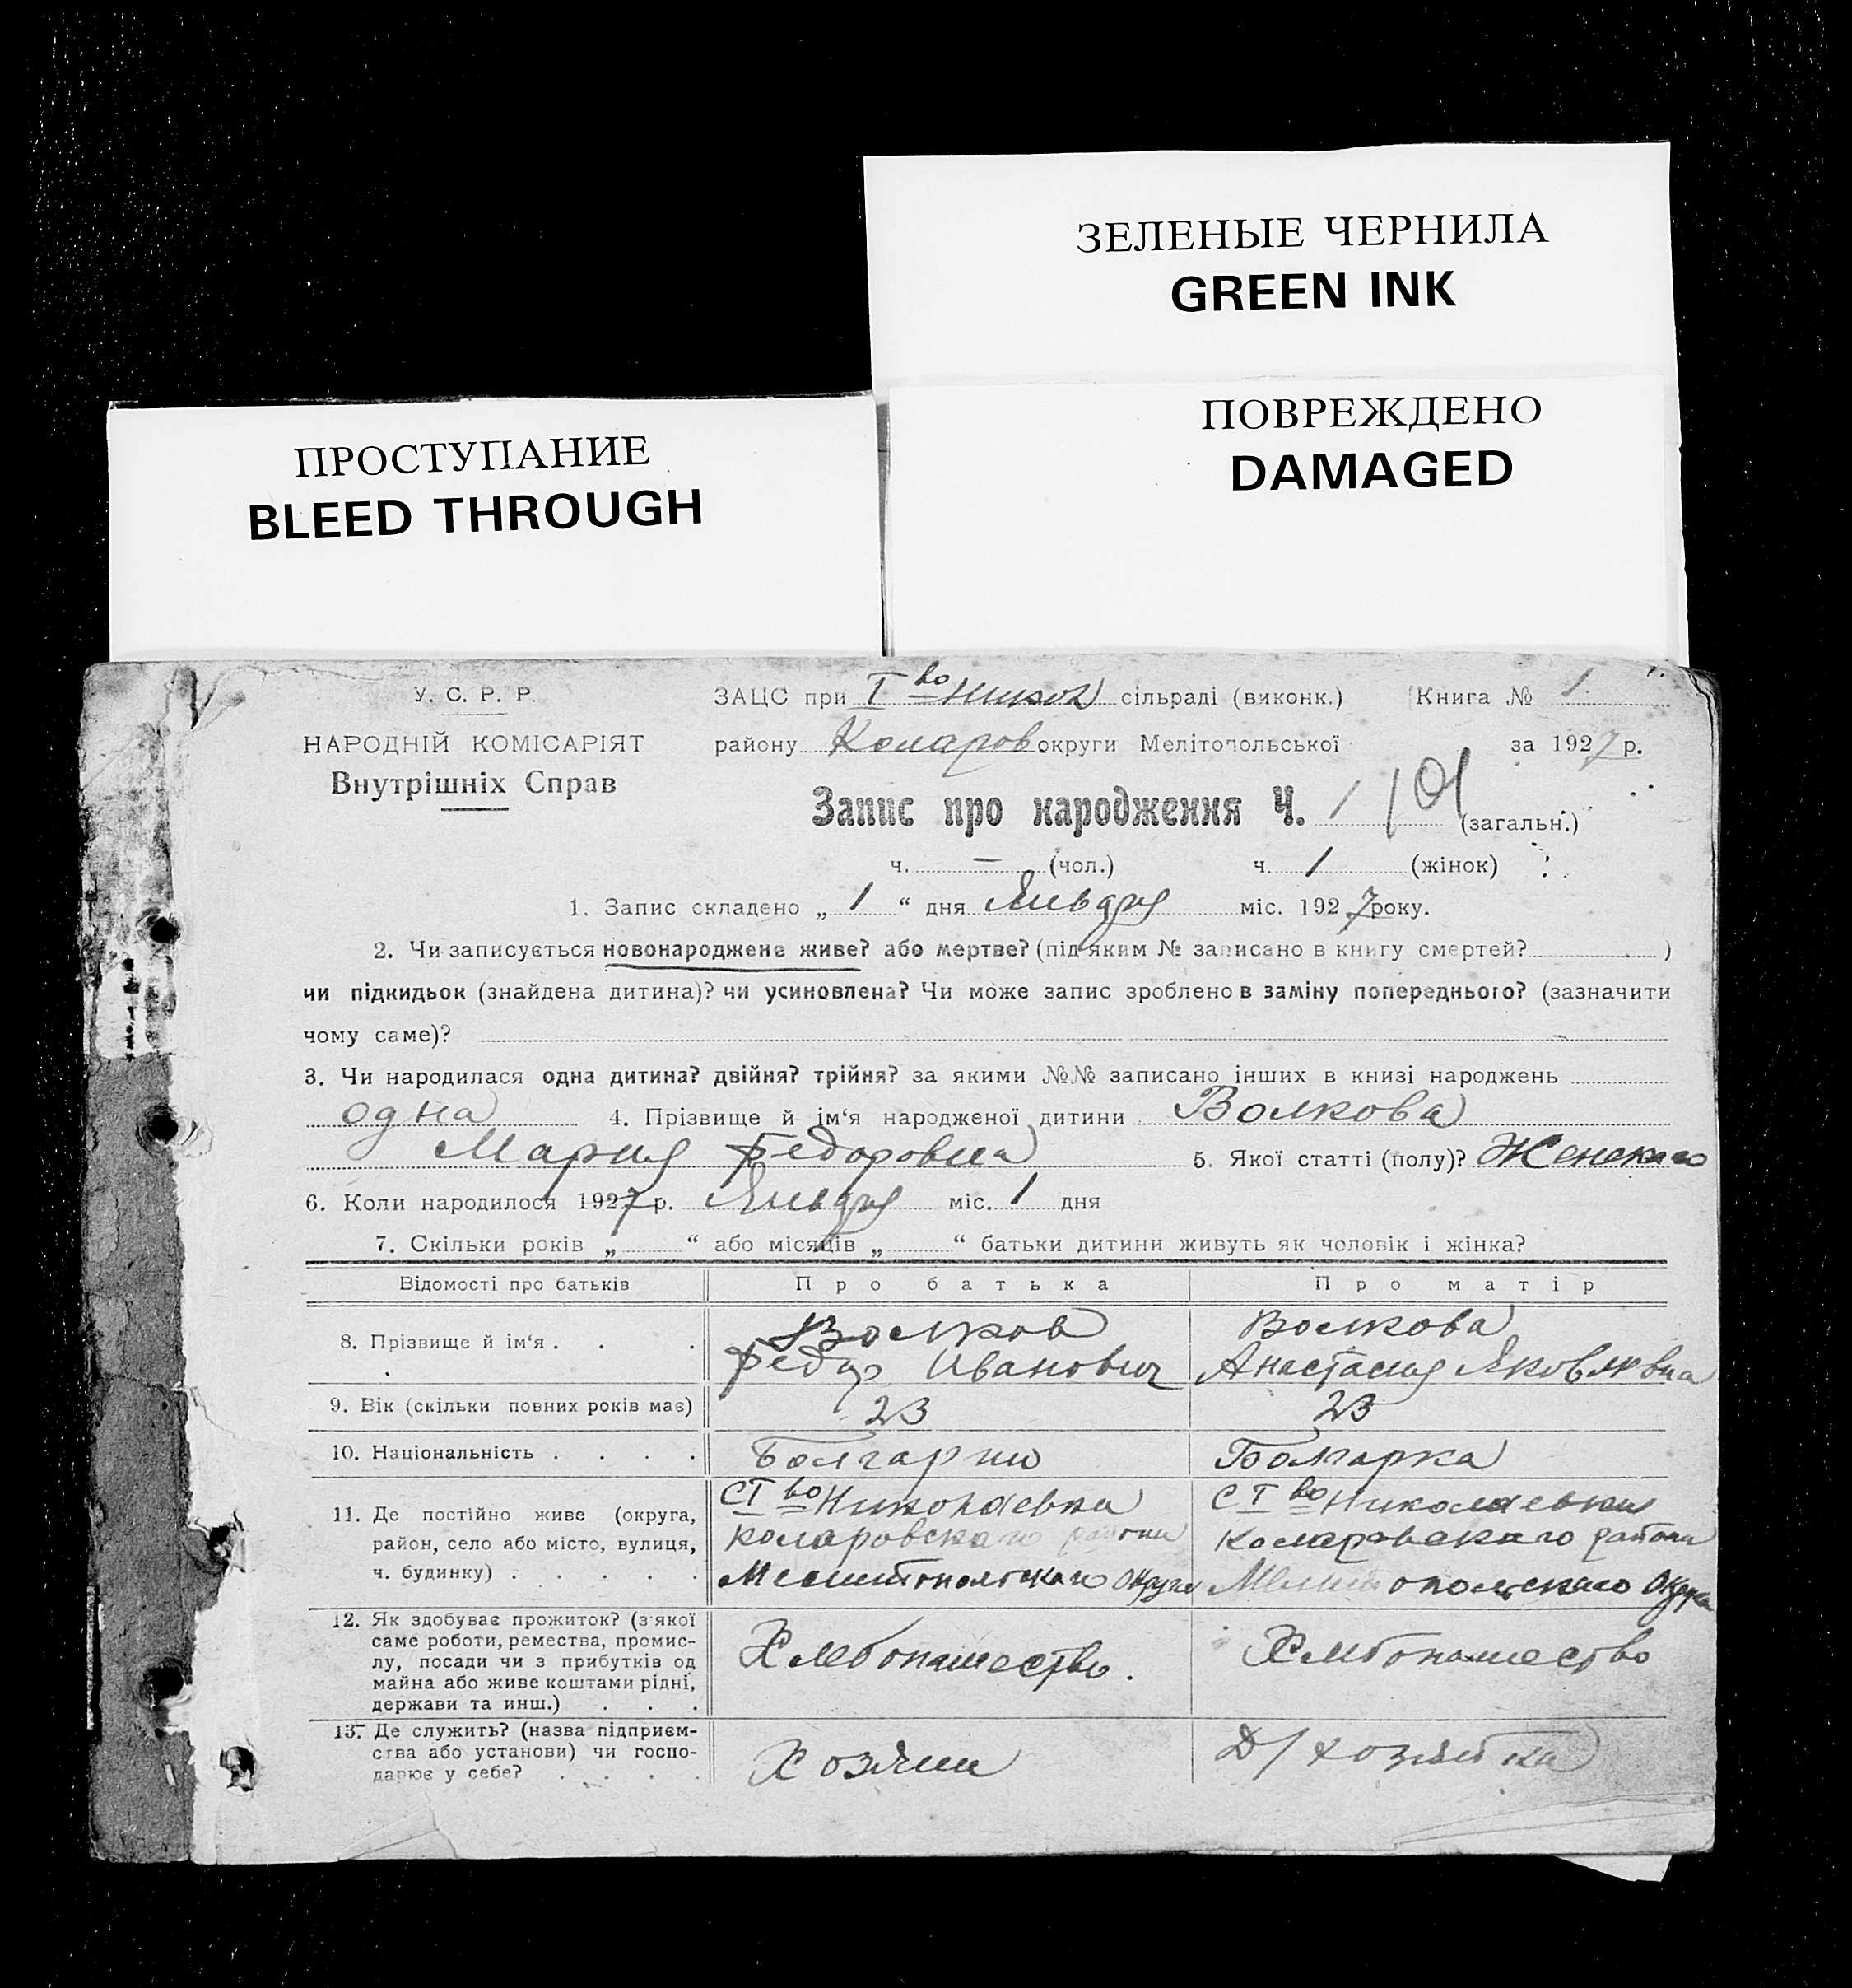 ЗЕЛЕНЫЕ ЧЕРНИЛА
GREEN INK
ПОВРЕЖДЕНО
DAMAGED
ПРОСТУПАНИЕ
BLEED THROUGH
У. С. Р. Р.
НАРОДНІЙ КОМІСАРІЯТ
Внутрішніх Справ
ЗАЦС при I во Никол сільраді (виконк.) Книга № 1.
району Коларов округи Мелітопольської за 1927 р.
Запис про народження Ч. 1 (загальн.)
ч. — (чол.) ч. 1 (жінок)
1. Запис складено „ 1 “ дня Января міс. 1927 року.
2. Чи записується новонароджене живе? або мертве? (під яким № записано в книгу смертей? )
чи підкидьок (знайдена дитина)? чи усиновлена? Чи може запис зроблено в заміну попереднього? (зазначити
чому саме)?
3. Чи народилася одна дитина? двійня? трійня? за якими №№ записано інших в книзі народжень
одна 4. Прізвище й ім‘я народженої дитини Волкова
Мария Федоровна 5. Якої статті (полу)? Женскаго
6. Коли народилося 1927 р. Января міс. 1 дня
7. Скільки років „ “ або місяців „ “ батьки дитини живуть як чоловік і жінка?
Відомості про батьків Про батька Про матір
8. Прізвище й ім‘я . . . Волков Волкова
Федор Иванович Анастасия Яковлевна
9. Вік (скільки повних років має) 23 23
10. Національність . . . . Болгарин Болгарка
11. Де постійно живе (округа, С I во Николаевка С I во Николаевка
район, село або місто, вулиця, Коларовскаго района Коларовскаго района
ч. будинку) . . . . . Мелитопольскаго Округа Мелитопольскаго Округа
12. Як здобуває прожиток? (з якої
саме роботи, ремества, промис-
лу, посади чи з прибутків од Хлебопашество. Хлебопашество
майна або живе коштами рідні,
держави та инш.) . . .
13. Де служить? (назва підприєм-
ства або установи) чи госпо- Хозяин Д/хозяйка
дарює у себе? . . . .